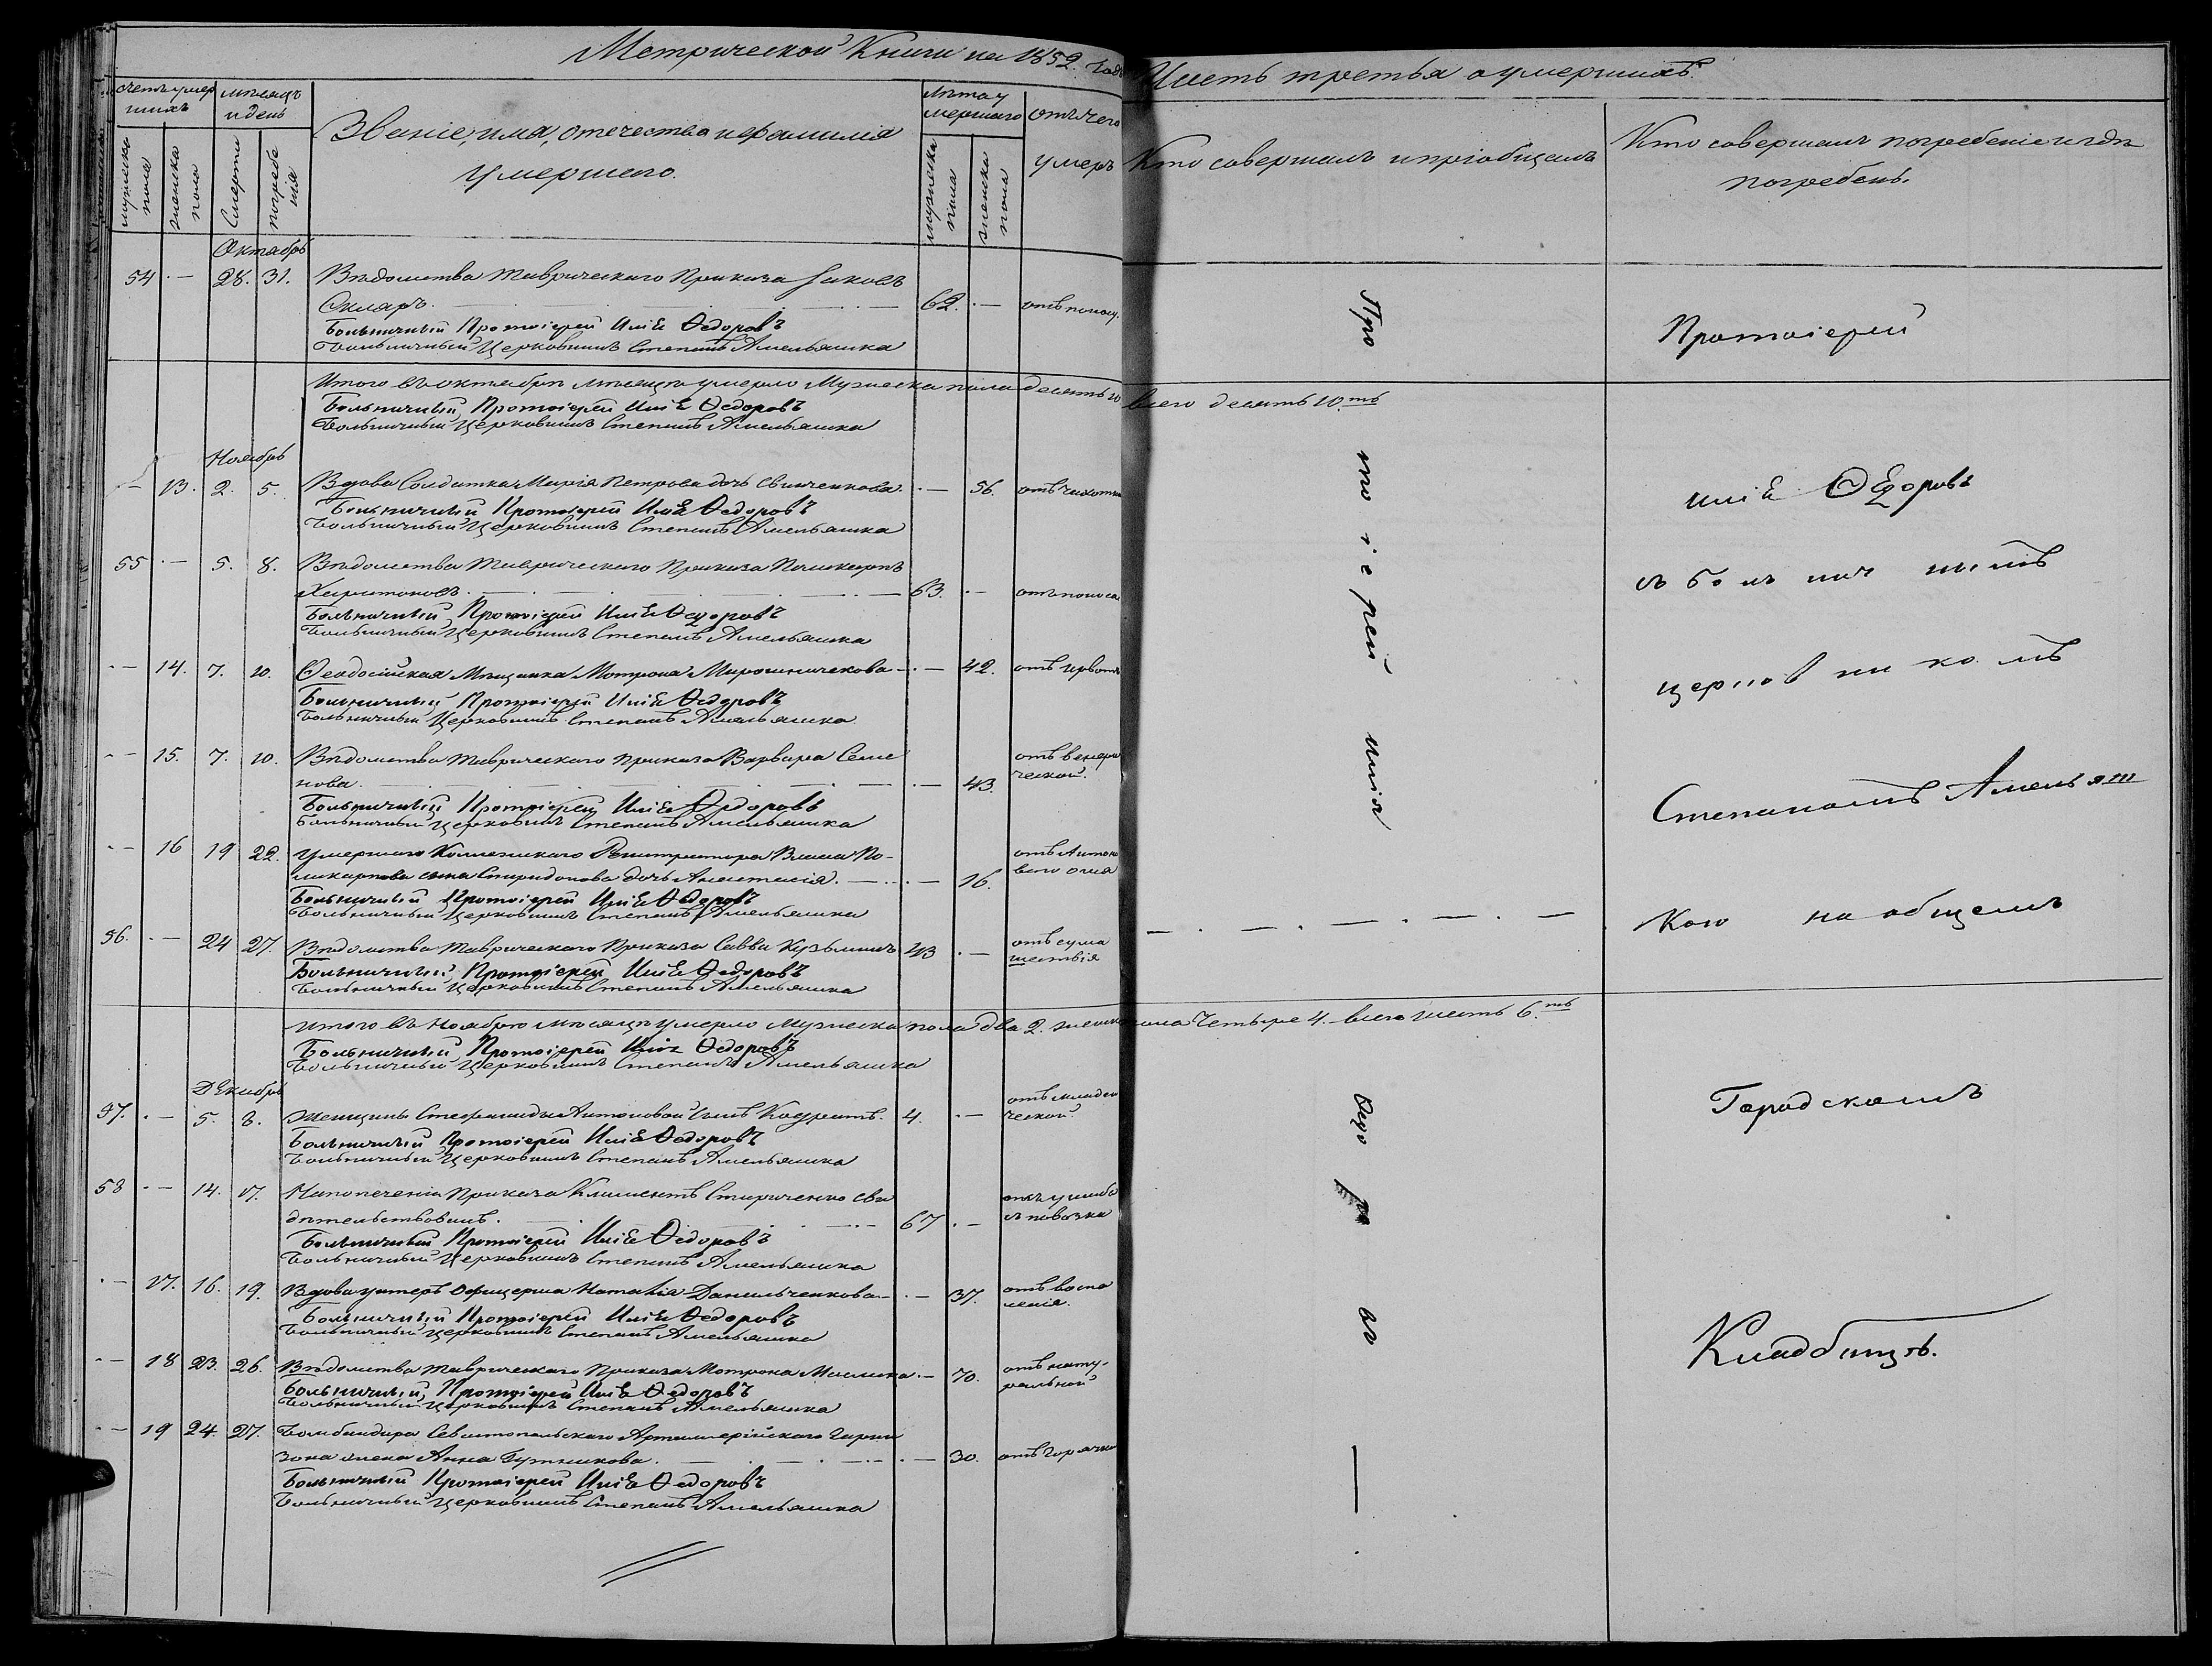 Метрической Книги на 1852. Годъ Часть третья о умершихъ.
счетъ умер шихъ
мужеска пола
женска пола
мѣсяцъ и день
Смерти
погребе нія
Званіе, имя, отечество и фамилія
умершаго.
лѣта у мершаго
мужеска пола
женска пола
отъ чего
умеръ
Кто совершалъ и пріобщалъ
Кто совершалъ погребеніе и гдѣ
погребенъ.
Октябрь
54 · — 28. 31. Вѣдомства Таврическаго Приказа Іаковъ
Скляръ. — 62. · — отъ поносу.
Больничный Протоіерей Илія Ѳедоровъ
Больничный Церковникъ Степанъ Амельяшка
Итого въ октябрѣ мѣсяцѣ умерло Мужеска пола десять 10 всего десять 10.ть
Больничный Протоіерей Илія Ѳедоровъ
Больничный Церковникъ Степанъ Амельяшка
Ноябрь
— 13. 2. 5. Вдова Солдатка Марія Петрова дочь Свинченкова. · — 56. отъ чахотки
Больничный Протоіерей Илія Ѳедоровъ
Больничный Церковникъ Степанъ Амельяшка
55 · — 5. 8. Вѣдомства Таврическаго Приказа Поликарпъ
Харитоновъ. — 63. · — отъ поноса
Больничный Протоіерей Илія Ѳедоровъ
Больничный Церковникъ Степанъ Амельяшка
· — 14. 7. 10. Ѳеодосійская Мѣщанка Мотрона Мирошниченкова — · — 42. отъ
Больничный Протоіерей Илія Ѳедоровъ
Больничный Церковникъ Степанъ Амельяшка
· — 15. 7. 10. Вѣдомства Таврическаго приказа Варвара Семе
нова. — · — 43. отъ венери ческой.
Больничный Протоіерей Илія Ѳедоровъ
Больничный Церковникъ Степанъ Амельяшка
· — 16 19 22. умершаго Коллежскаго Регистратора Власа По-
ликарпова сына Спиридонова дочь Анастасія. — · — 16. отъ Антоно ваго огня
Больничный Протоіерей Илія Ѳедоровъ
Больничный Церковникъ Степанъ Амельяшка
56. · — 24 27. Вѣдомства Таврическаго Приказа Савва Кузьминъ 43 · — отъ сума шествія
Больничный Протоіерей Илія Ѳедоровъ
Больничный Церковникъ Степанъ Амельяшка
Итого въ Ноябрѣ мѣсяцѣ умерло Мужеска пола два 2. женска пола Четыре 4. всего шесть 6.ть
Больничный Протоіерей Илія Ѳедоровъ
Больничный Церковникъ Степанъ Амельяшка
Декабрь
57. · — 5. 8. Женщины Стефаниды Антоновой сынъ Кодратъ. 4. · — отъ младен ческой.
Больничный Протоіерей Илія Ѳедоровъ
Больничный Церковникъ Степанъ Амельяшка
58 · — 14. 17. На попеченіи Приказа Климентъ Стариченко сви
дѣтельствованъ. — 67 · — отъ ушиба съ повозки
Больничный Протоіерей Илія Ѳедоровъ
Больничный Церковникъ Степанъ Амельяшка
· — 17. 16. 19. Вдова унтеръ Офицерша Наталія Данильченкова — · — 37. отъ воспа ленія.
Больничный Протоіерей Илія Ѳедоровъ
Больничный Церковникъ Степанъ Амельяшка
· — 18 23. 26. Вѣдомства Таврическаго Приказа Мотрона · — 70. отъ нату- ральной
Больничный Протоіерей Илія Ѳедоровъ
Больничный Церковникъ Степанъ Амельяшка
· — 19 24. 27. Бомбандира Севастопольскаго Артиллерійскаго Гарни
зона жена Анна — 30. отъ Горячки
Больничный Протоіерей Илія Ѳедоровъ
Больничный Церковникъ Степанъ Амельяшка
Про то і е рей Илія Ѳедо ро въ
Протоіерей
Илія Ѳедоровъ
съ Больничнымъ
церковникомъ
Степаномъ Амельяш
кою на общемъ
Городскомъ
Кладбищѣ.